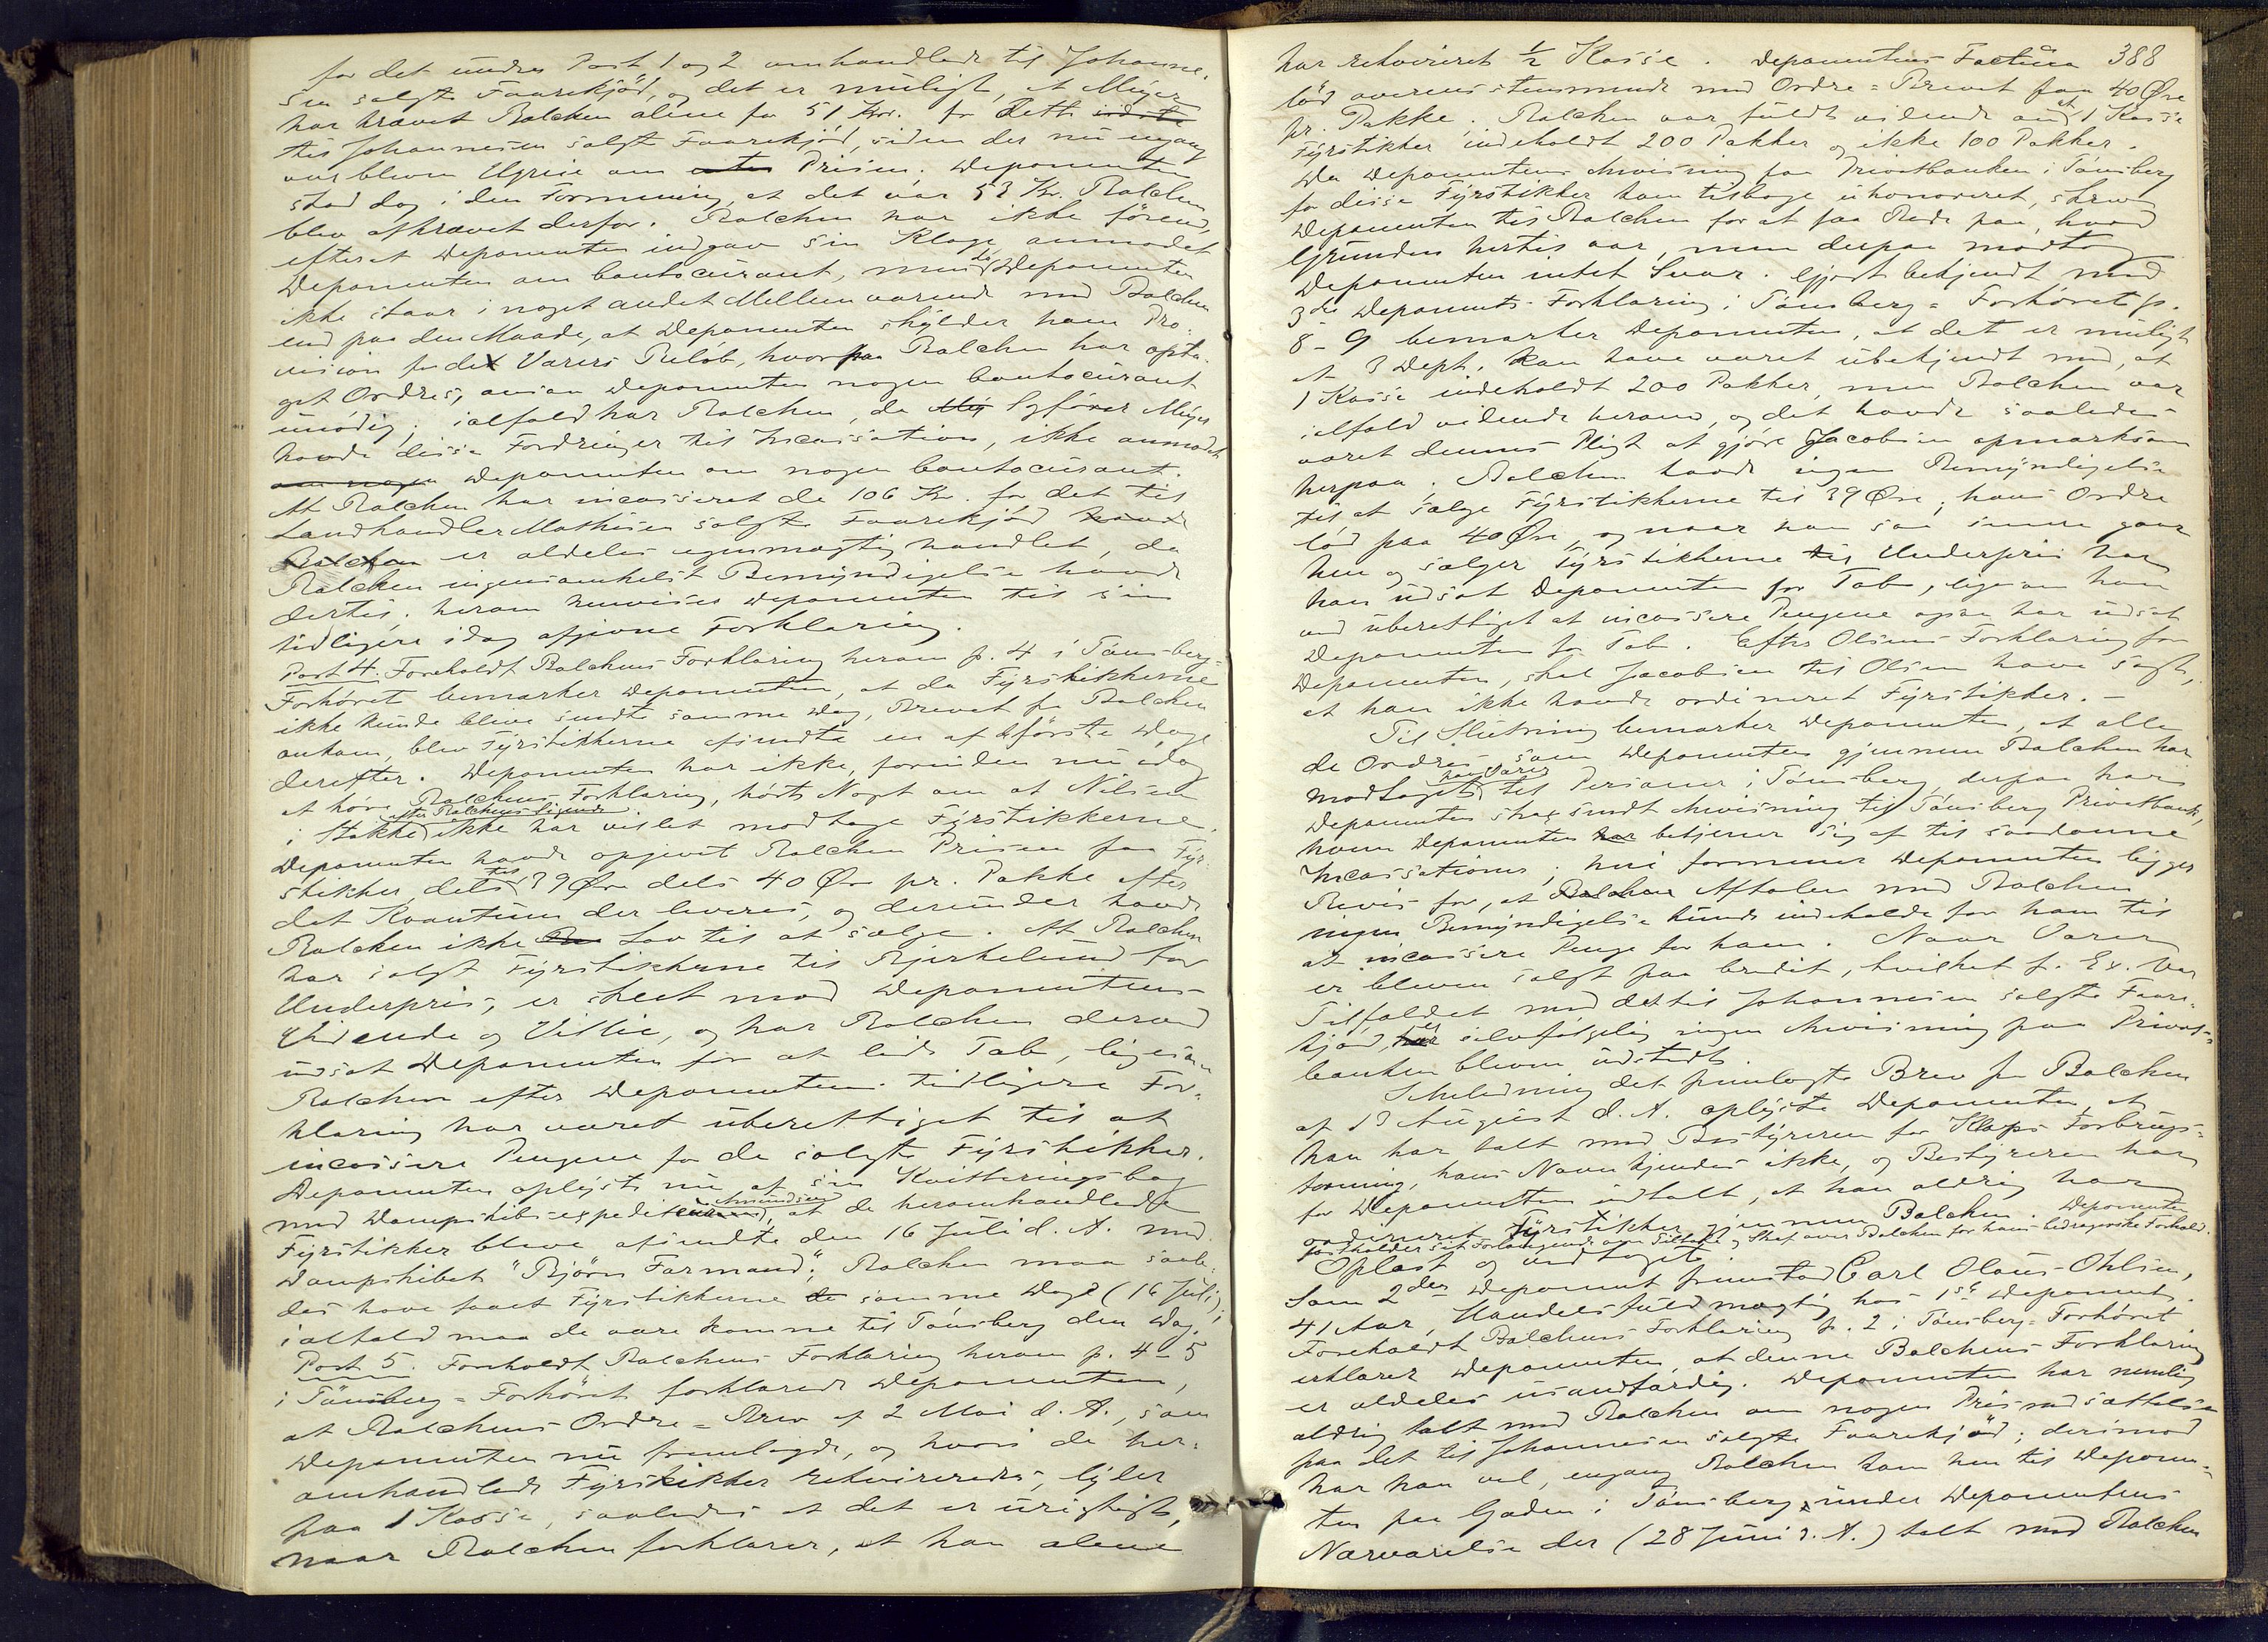 for det under Post 1 og 2 omhandlede til Johanne-
sen solgte Faarekjød, og det er muligt, at Meyer
har krævet Balchen alene for 51 Kr. for dette sidste
til Johannesen solgte Faarekjød, siden der nu engang
var bleven Ugreie om Prisen. Deponenten
stod dog i den Formening, at det var 53 Kr. Balchen
blev afkrævet derfor. Balchen har ikke førend,
efterat Deponenten indgav sin Klage, anmodet
Deponenten om Contocurant, men da Deponenten
ikke staar i noget andet Mellemværende med Balchen
end paa den Maade, at Deponenten skylder ham Pro-
vision for de Varers Beløb, hvorpaa Balchen har opta-
get Ordres, ansaa Deponenten nogen Contocurant
unødig; ialfald har Balchen, da Sagfører Meyer
havde disse Fordringer til Incassation, ikke anmodet
om nogen Deponenten om nogen Contocurant.
At Balchen har incasseret de 106 Kr. for det til
Landhandler Mathisen solgte Faarekjød havde
Balchen er aldeles egenmægtig handlet, da
Balchen ingensomhelst Bemyndigelse havde
dertil; herom henviser Deponenten til sin
tidligere idag afgivne Forklaring.
Post 4. Foreholdt Balchens Forklaring herom p. 4 i Tønsberg-
Forhøret bemærker Deponenten, at da Fyrstikkerne
ikke kunde blive sendte samme Dag, Brevet fra Balchen
ankom, blev Fyrstikkerne afsendte en af første Dage
derefter. Deponenten har ikke, forinden nu idag
at høre Balchens Forklaring, hørt Noget om at Nilsen
i Stokke efter Balchens Sigende ikke har villet modtage Fyrstikkerne.
Deponenten havde opgivet Balchen Prisen for Fyr-
stikker, dels til 39 Øre dels 40 Øre pr. Pakke efter
det Kvantum der leveres, og derunder havde
Balchen ikke Lov til at sælge. At Balchen
har solgt Fyrstikkerne til Bjerkelund for
Underpris, er skeet mod Deponentens
Vidende og Villie, og har Balchen derved
udsat Deponenten for at lide Tab, ligesom
Balchen efter Deponentens tidligere For-
klaring har været uberettiget til at
incassere Pengene for de solgte Fyrstikker.
Deponenten oplyste nu af sin Kvitteringsbog
med Dampskibsexpeditør Amundsen, at de heromhandlede
Fyrstikker bleve afsendte den 16 Juli d. A. med
Dampskibet "Bjørn Farmand"; Balchen maa saale-
des have faaet Fyrstikkerne samme Dag (16 Juli),
ialfald maa de være komne til Tønsberg den Dag.
Post 5. Foreholdt Balchens Forklaring herom p. 4-5
i Tønsberg-Forhøret forklarede Deponenten,
at Balchens Ordre-Brev af 2 Mai d. A., som
Deponenten nu fremlagde, og hvori de her-
omhandlede Fyrstikker rekvireredes, lyder
paa 1 Kasse, saaledes at det er urigtigt,
naar Balchen forklarer, at han alene
har rekvireret 1/2 Kasse. Deponentens Factura 388
lød overensstemmende med Ordre-Brevet paa 40 Øre
pr. Pakke. Balchen var fuldt vidende om, at 1 Kasse
Fyrstikker indeholdt 200 Pakker og ikke 100 Pakker.
Da Deponentens Anvisning fra Privatbanken i Tønsberg
for disse Fyrstikker kom tilbage uhonoreret, skrev
Deponenten til Balchen for at faa Rede paa, hvad
Grunden hertil var, men derpaa modtog
Deponenten intet Svar. Gjort bekjendt med
3die Deponents Forklaring i Tønsberg-Forhøret p.
8-9 bemærker Deponenten, at det er muligt
at 3 Dept. kan have været ubekjendt med, at
1 Kasse indeholdt 200 Pakker, men Balchen var
ialfald vidende herom, og det havde saaledes
været dennes Pligt at gjøre Jacobsen opmærksom
herpaa. Balchen havde ingen Bemyndigelse
til at sælge Fyrstikkerne til 39 Øre; hans Ordre
lød paa 40 Øre, og naar han saa senere gaar
hen og sælger Fyrstikkerne til Underpris har
han udsat Deponenten for Tab, ligesom han
ved uberettiget at incassere Pengene ogsaa har udsat
Deponenten for Tab. Efter Olsens Forklaring for
Deponenten, skal Jacobsen til Olsen have sagt,
at han ikke havde ordineret Fyrstikker. —
Til Slutning bemærker Deponenten, at alle
de Ordres som Deponenten gjennem Balchen har
modtaget paa Varer til Personer i Tønsberg, derpaa har
Deponenten strax sendt Anvisning til Tønsberg Privatbank,
hvem Deponenten har betjener sig af til saadanne
Incassationer; heri formener Deponenten ligger
Bevis for, at Balchens Aftalen med Balchen
ingen Bemyndigelse kunde indeholde for ham til
at incassere Penge for ham. Naar Varer
er bleven solgt paa Credit, hvilket f. Ex. var
Tilfældet med det til Johannesen solgte Faare-
kjød, er selvfølgelig ingen Anvisning paa Privat-
banken bleven udstedt.
I Anledning det fremlagte Brev fra Balchen
af 13 August d. A. oplyste Deponenten, at
han har talt med Bestyreren for Klops Forbrugs-
forening, hans Navn kjendes ikke, og Bestyreren har
for Deponenten udtalt, at han aldrig har
ordineret Fyrstikker gjennem Balchen. Deponenten
fastholder sit Forlangende om Tiltale og Straf over Balchen for hans bedragerske Forhold.
Oplæst og vedtaget.
Som 2den Deponent fremstod Carl Olaus Ohlsen,
41 Aar, Handelsfuldmægtig hos 1ste Deponent.
Foreholdt Balchens Forklaring p. 2 i Tønsberg-Forhøret
erklærer Deponenten, at denne Balchens Forklaring
er aldeles usandfærdig. Deponenten har nemlig
aldrig talt med Balchen om nogen Prisnedsættelse
paa det til Johannesen solgte Faarekjød; derimod
har han vel, engang Balchen kom hen til Deponen-
ten paa Gaden i Tønsberg, under Deponentens
Nærværelse der (28 Juni d. A.) talt med Balchen